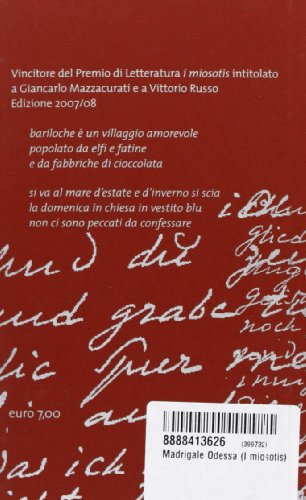 Vincitore del Premio di Letteratura i miosotis intitolato
a Giancarlo Mazzacurati e a Vittorio Russo
Edizione 2007/08
bariloche è un villaggio amorevole
popolato da elfi e fatine
e da fabbriche di cioccolata
si va al mare d'estate e d'inverno si scia
la domenica in chiesa in vestito blu
non ci sono peccati da confessare
und du
und grabe
noch
ich
euro 7,00
8888413626 (399732)
Madrigale Odessa (I miosotis)